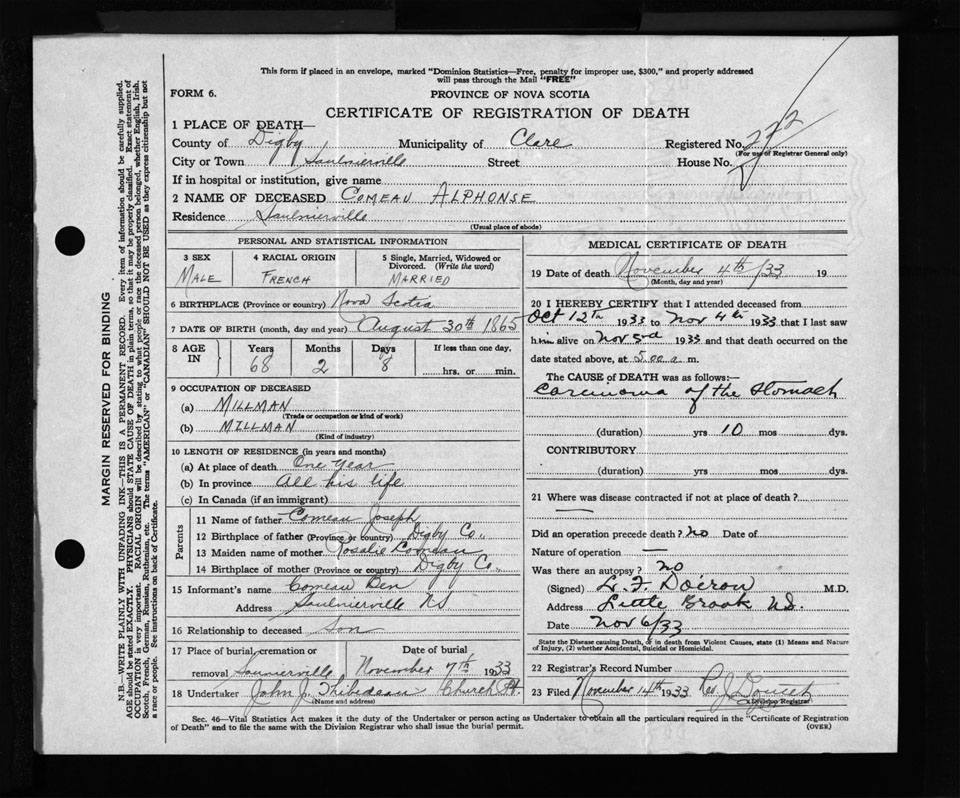 This form if placed in an envelope, marked "Dominion Statistics—Free, penalty for improper use, $300," and properly addressed
will pass through the Mail "FREE"
FORM 6.
PROVINCE OF NOVA SCOTIA
CERTIFICATE OF REGISTRATION OF DEATH
1 PLACE OF DEATH—
County of Digby Municipality of Clare Registered No. 272
(For use of Registrar General only)
City or Town Saulnierville Street House No.
If in hospital or institution, give name
2 NAME OF DECEASED COMEAU ALPHONSE
Residence Saulnierville
(Usual place of abode)
PERSONAL AND STATISTICAL INFORMATION
3 SEX 4 RACIAL ORIGIN 5 Single, Married, Widowed or
Divorced. (Write the word)
MALE FRENCH MARRIED
6 BIRTHPLACE (Province or country) Nova Scotia
7 DATE OF BIRTH (month, day and year) August 30th 1865
8 AGE IN Years Months Days If less than one day,
68 2 8 hrs. or min.
9 OCCUPATION OF DECEASED
(a) MILLMAN
(Trade or occupation or kind of work)
(b) MILLMAN
(Kind of industry)
10 LENGTH OF RESIDENCE (in years and months)
(a) At place of death One year
(b) In province all his life
(c) In Canada (if an immigrant)
Parents
11 Name of father Comeau Joseph
12 Birthplace of father (Province or country) Digby Co.,
13 Maiden name of mother Rosalie Comeau
14 Birthplace of mother (Province or country) Digby Co.,
15 Informant's name Comeau Ben
Address Saulnierville NS
16 Relationship to deceased Son
17 Place of burial, cremation or Date of burial
removal Saunierville November 7th 1933
18 Undertaker John J. Thibideau Church Pt.
(Name and address)
MEDICAL CERTIFICATE OF DEATH
19 Date of death November 4th/33 19
(Month, day and year)
20 I HEREBY CERTIFY that I attended deceased from
Oct 12th 1933 to Nov 4th 1933 that I last saw
him alive on Nov 3rd 1933 and that death occurred on the
date stated above, at 5.00 a. m.
The CAUSE OF DEATH was as follows:—
Carcinoma of the Stomach
(duration) yrs 10 mos dys.
CONTRIBUTORY
(duration) yrs mos dys.
21 Where was disease contracted if not at place of death?
—
Did an operation precede death? no Date of
Nature of operation —
Was there an autopsy? no
(Signed) L. F. Doiron M.D.
Address Little Brook N.S.
Date Nov 6/33
State the Disease causing Death, or in death from Violent Causes, state (1) Means and Nature
of Injury, (2) whether Accidental, Suicidal or Homicidal.
22 Registrar's Record Number
23 Filed November 14th 1933 Rev. J. Doucet
Division Registrar
Sec. 46—Vital Statistics Act makes it the duty of the Undertaker or person acting as Undertaker to obtain all the particulars required in the "Certificate of Registration
of Death" and to file the same with the Division Registrar who shall issue the burial permit. (OVER)
MARGIN RESERVED FOR BINDING
N.B.—WRITE PLAINLY WITH UNFADING INK—THIS IS A PERMANENT RECORD. Every item of information should be carefully supplied.
AGE should be stated EXACTLY. PHYSICIANS should STATE CAUSE OF DEATH in plain terms, so that it may be properly classified. Exact statement of
OCCUPATION is very important. RACIAL ORIGIN will be described by stating to what people or race the deceased person belonged, whether English, Irish,
Scotch, French, German, Russian, Ruthenian, etc. The terms "AMERICAN" or "CANADIAN" SHOULD NOT BE USED as they express citizenship but not
a race or people. See instructions on back of Certificate.